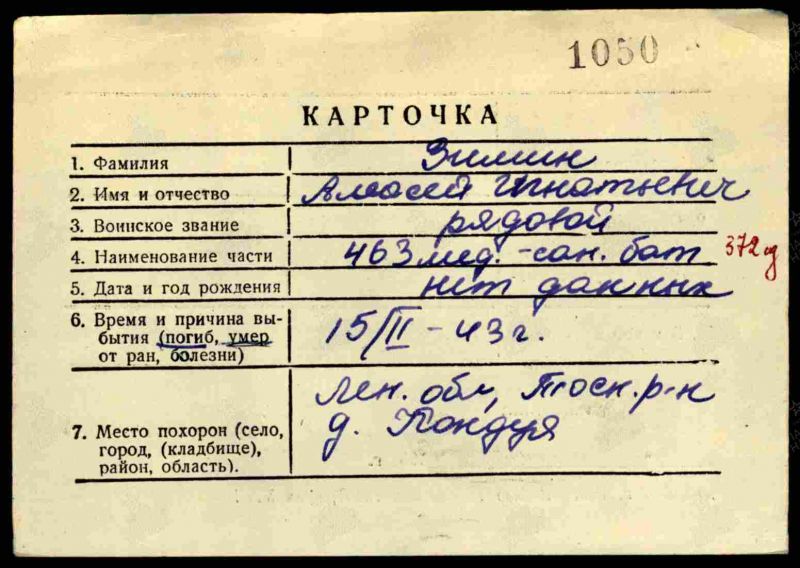 1050
КАРТОЧКА
1. Фамилия Зимин
2. Имя и отчество Алексей Игнатьевич
3. Воинское звание рядовой
4. Наименование части 463 мед.-сан. бат 372 сд
5. Дата и год рождения нет данных
6. Время и причина вы-
бытия (погиб, умер 15/II - 43 г.
от ран, болезни)
Лен. обл, Тосн. р-н
7. Место похорон (село, д. Кондуя
город, (кладбище),
район, область).